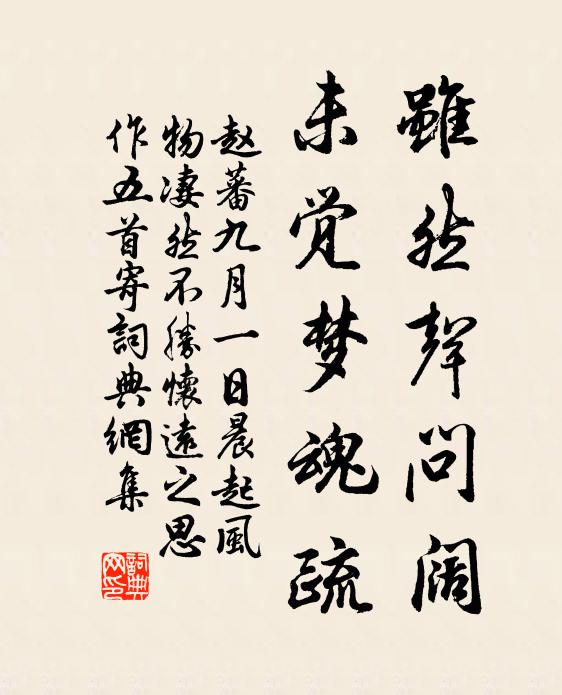 雖然聲問闊
未觉梦魂疏
赵蕃九月一日晨起風
物凄然不勝懷遠之思
作五首寄詞典網集
詞典
网印